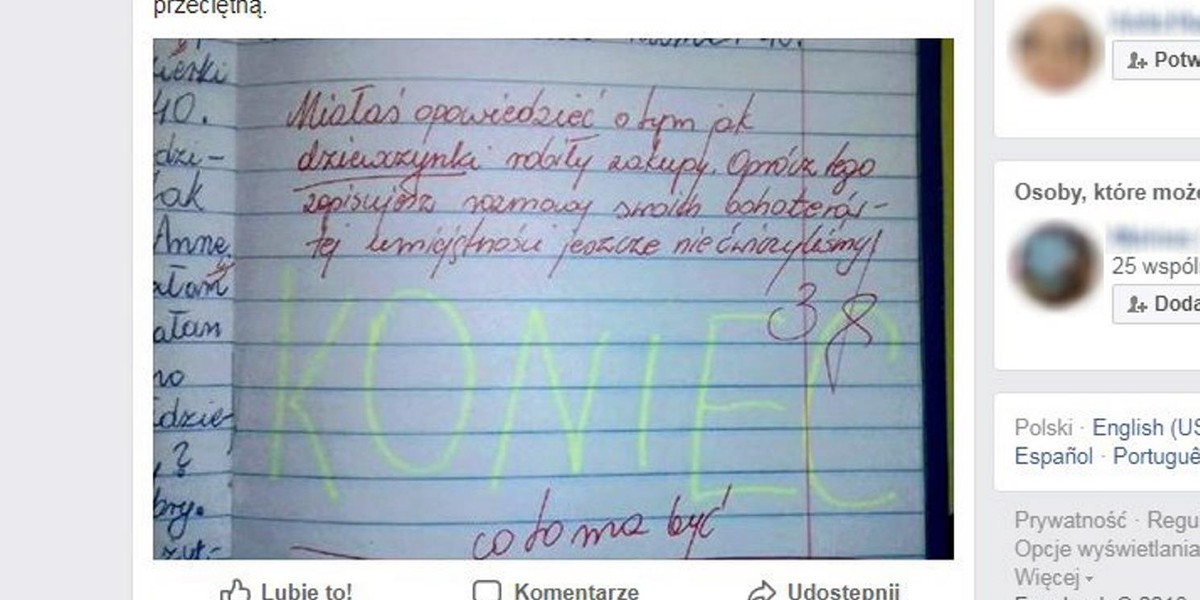 przeciętną.
ierki
40.
dzi-
Jak
Annę
ałam
atam
no
idzie-
, ?
bry.
Miałaś opowiedzieć o tym jak
dziewczynki robiły zakupy. Oprócz tego
zapisujesz rozmowy swoich bohaterów-
tej umiejętności jeszcze nie ćwiczyliśmy!
3
KONIEC
co to ma być
Lubię to!
Komentarze
Udostępnij
Potw
Osoby, które może
25 wspól
Doda
Polski · English (US
Español · Portuguê
Prywatność · Regu
Opcje wyświetlania
Więcej